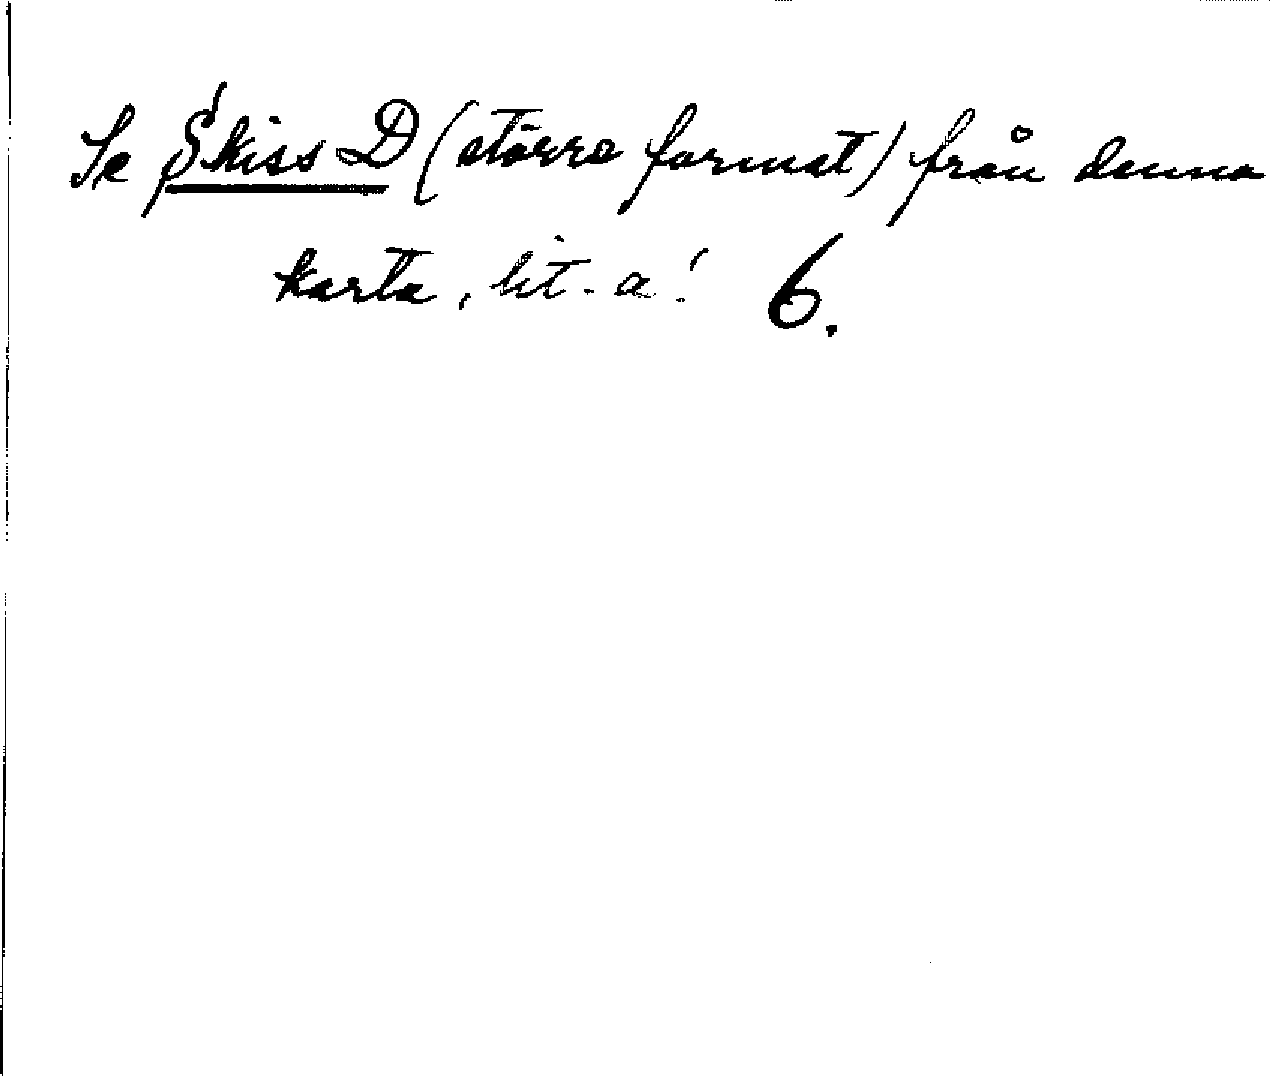 Se Skiss D (större format) från denna
karta, lit. a! 6.